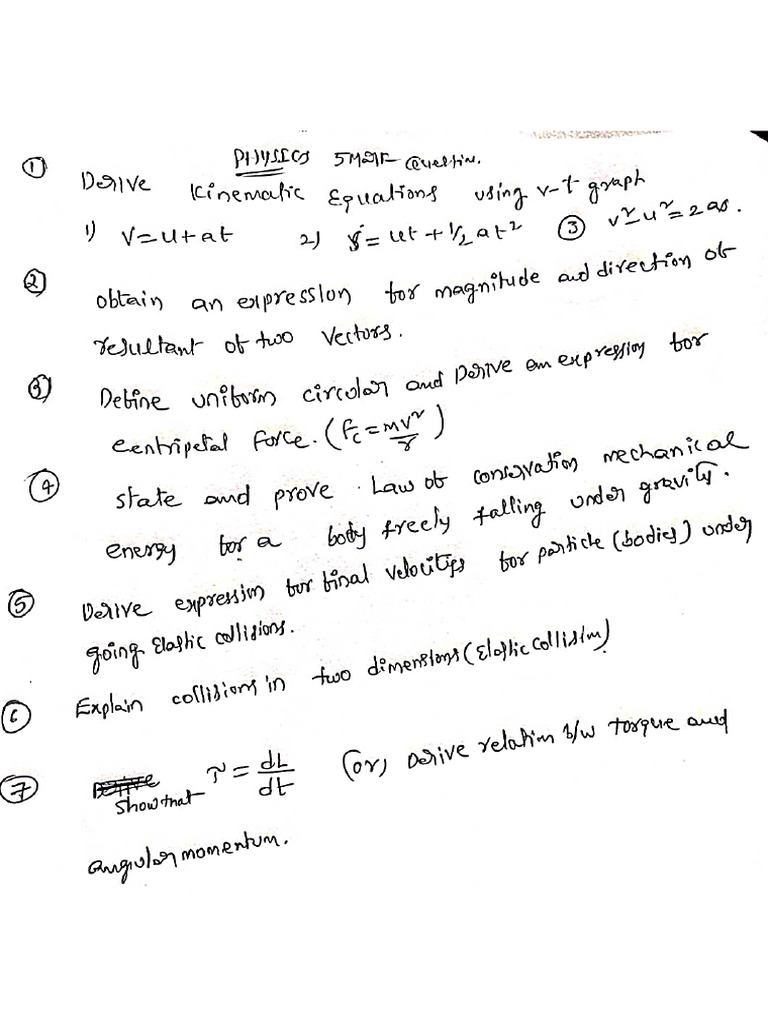 PHYSICS 5 Mark Question.
① Derive Kinematic Equations using v-t graph
1) V=u+at 2) S= ut +1/2 at² ③ v²-u²=2as.
② obtain an expression for magnitude and direction of
resultant of two vectors.
③ Define uniform circular and Derive an expression for
centripetal force. (Fc = mv²/r)
④ state and prove. Law of conservation mechanical
energy for a body freely falling under gravity.
⑤ Derive expression for final velocities for particle (bodies) under
going Elastic collisions.
⑥ Explain collisions in two dimensions (Elastic collision)
⑦ Show that τ = dL/dt (or) Derive relation b/w torque and
angular momentum.